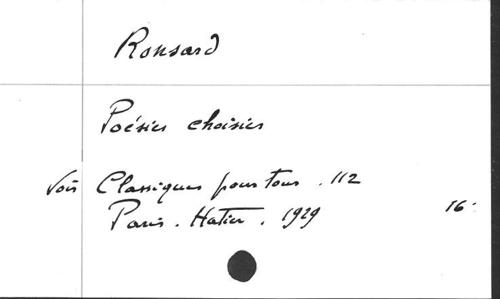 Ronsard
Poésies choisies
Voir Classiques pour tous . 112
Paris . Hatier . 1929 16°